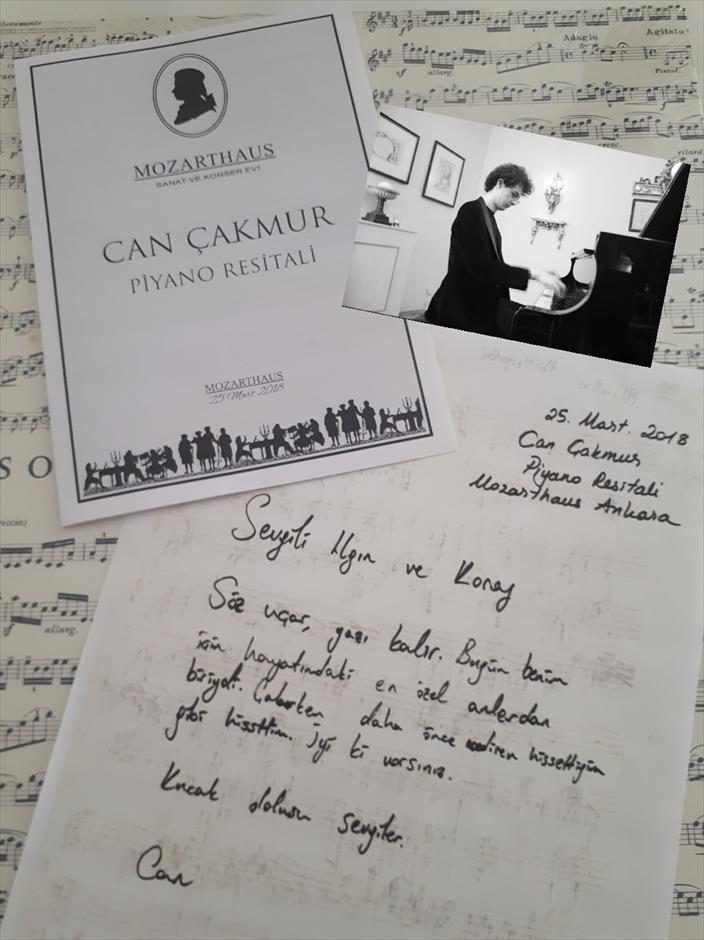 MOZARTHAUS
SANAT VE KONSER EVİ
CAN ÇAKMUR
PİYANO RESİTALİ
MOZARTHAUS
25 Mart 2018
Adagio
Agitato
allarg.
Pianof.
cresc.
ritard.
SO
sf allarg.
25. Mart. 2018
Can Çakmur
Piyano Resitali
Mozarthaus Ankara
Sevgili Ilgın ve Koray
Söz uçar, yazı kalır. Bugün benim
için hayatımdaki en özel anlardan
biriydi. Çalarken daha önce nadiren hissettiğim
gibi hissettim. İyi ki varsınız.
Kucak dolusu sevgiler.
Can